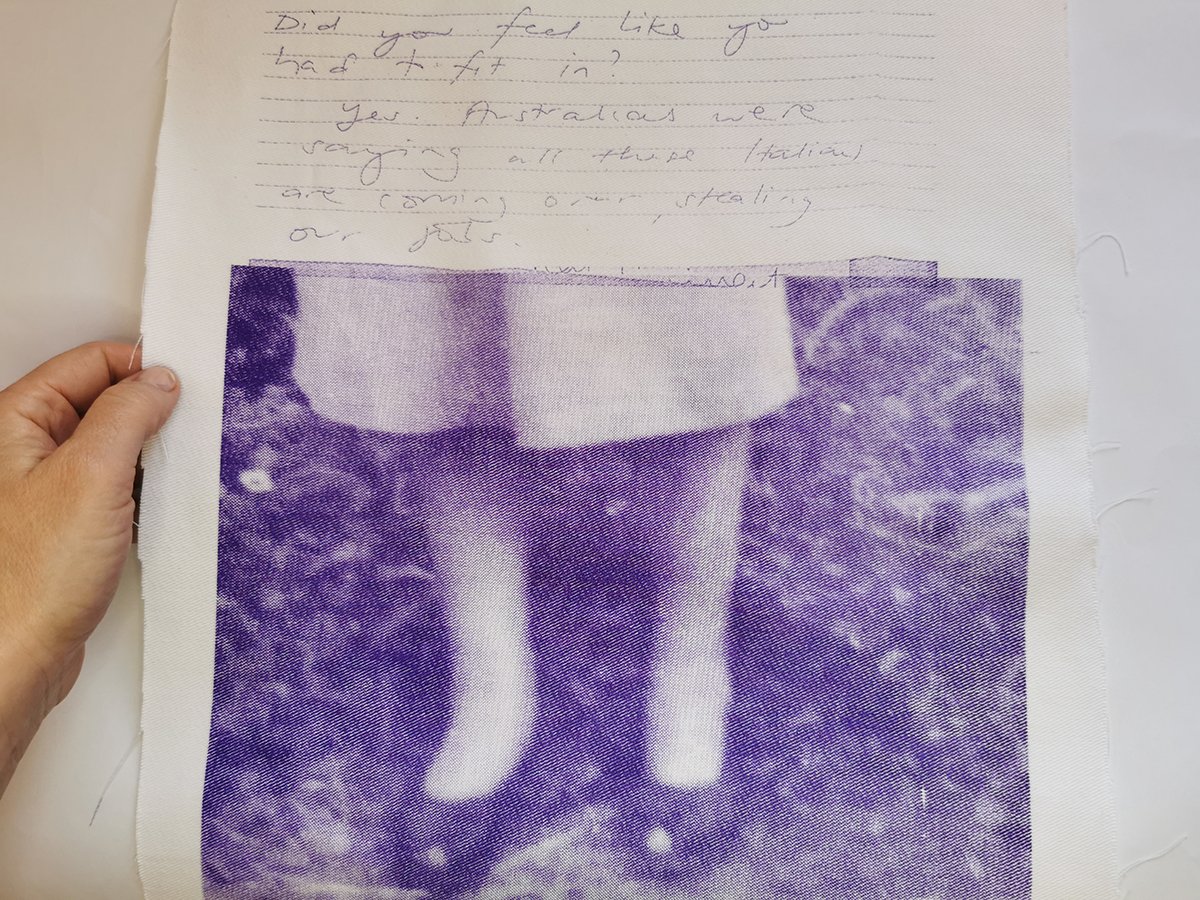 Did you feel like yo
had to fit in?
Yes. Australias were
saying all these Italians
are coming over stealing
our jobs.